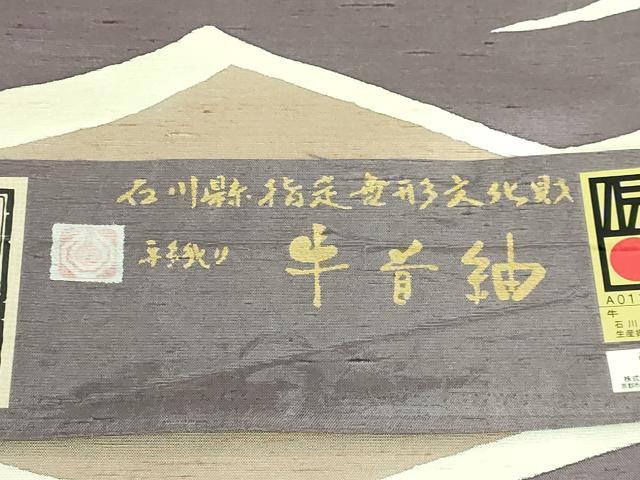 石川縣指定無形文化財
手織り 牛首紬
伝
A01
牛
石川
生産
株式
京都市